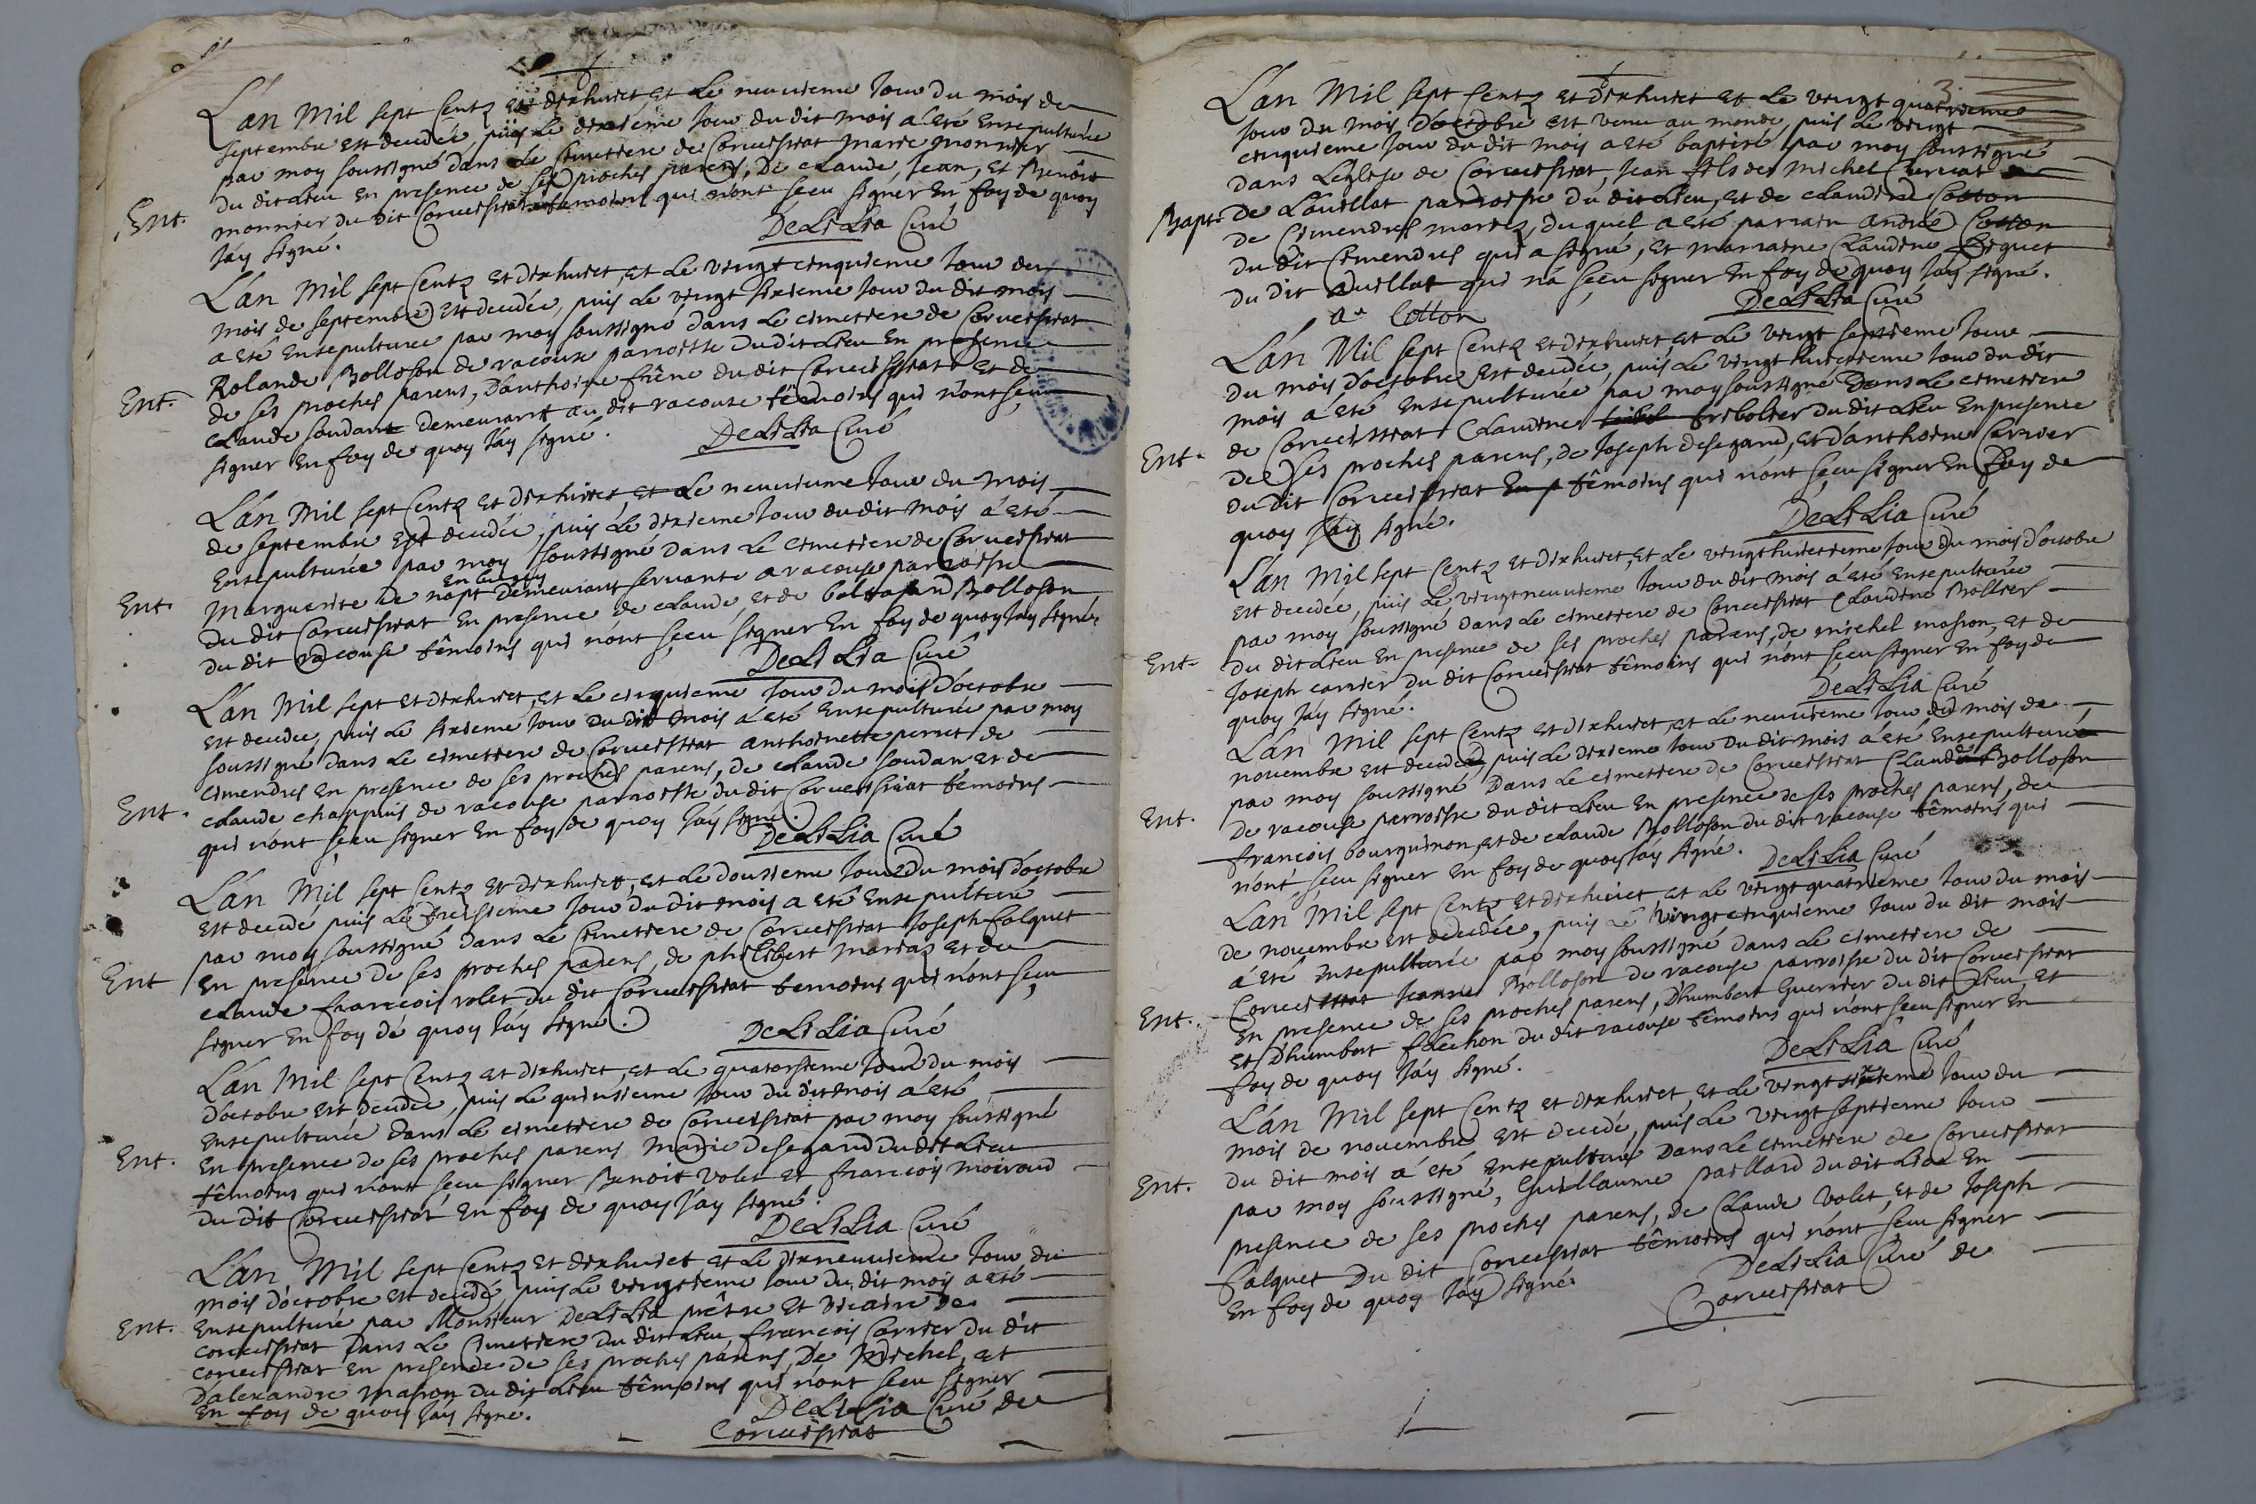 L'an Mil sept Centz et dixhuict, et Le neuuieme Jour du mois de
septembre est decedée, puis Le dixieme Jour du dit mois a été Ensepulturée
par moy soussigné dans Le Cimetiere de Corueissiat Marie Monnier
du dit Lieu En presence de ses proches parens, De Claude, Jean, et Benoist
Ent. monnier du dit Corueissiat temoins qui n'ont sceu signer En foy de quoy
J'ay signé.
DeLiLia Curé
L'an Mil sept Centz et dixhuict, et Le vingt cinquieme Jour du
mois de septembre est decedée, puis Le vingt sixieme Jour du dit mois
a été Ensepulturée par moy soussigné dans Le cimetiere de Corueissiat
Rolande Bolloson de racouse parroisse du dit Lieu En presence
Ent. de ses proches parens, D'anthoine frêne du dit Corueissiat et de
Claude soudan demeurant au dit racouse têmoins qui n'ont sceu
signer En foy de quoy J'ay signé.
DeLiLia Curé
L'an Mil sept Centz et dixhuict et Le neuuieme Jour du mois
de septembre est decedée, puis Le dixieme Jour du dit mois a été
Ensepulturée par moy soussigné dans Le cimetiere de Corueissiat
en bugey
Ent. Marguerite de napt Demeurant seruante a racouse parroisse
du dit Corueissiat En presence de Claude, et de baltasard Bolloson
du dit racouse têmoins qui n'ont sceu signer En foy de quoy J'ay signé.
DeLiLia Curé
L'an Mil sept et dixhuict, et Le cinquieme Jour du mois d'octobre
est decedée, puis Le sixieme Jour du dit mois a été Ensepulturée par moy
soussigné dans Le cimetiere de Corueissiat anthoinette perret de
cimendres En presence de ses proches parens, de Claude soudan et de
Ent. Claude chappuis de racouse parroisse du dit Corueissiat têmoins
qui n'ont sceu signer En foy de quoy J'ay signé.
DeLiLia Curé
L'an Mil sept Centz et dixhuict, et Le dousieme Jour du mois d'octobre
est decedé puis Le treisieme Jour du dit mois a été Ensepulturé
par moy soussigné dans Le Cimetiere de Corueissiat Joseph falquet
Ent En presence de ses proches parens, de philibert mariaz et de
Claude francois volet du dit Corueissiat têmoins qui n'ont sceu
signer En foy de quoy J'ay signé.
DeLiLia Curé
L'an Mil sept Centz et dixhuict, et Le quatorsieme Jour du mois
d'octobre est decedée, puis Le quinsieme Jour du dit mois a été
Ensepulturée dans Le cimetiere de Corueissiat par moy soussigné
Ent. En presence de ses proches parens Marie Desegaud du dit Lieu
têmoins qui n'ont sceu signer Benoit Volet et francois moiroud
du dit Corueissiat En foy de quoy J'ay signé.
DeLiLia Curé
L'an Mil sept Centz et dixhuict et Le dixneuuieme Jour du
mois d'octobre est decedé puis Le vingtieme Jour du dit mois a été
Ent. Ensepulturé par Monsieur DeLiLia prêtre et vicaire de
Corueissiat Dans Le Cimetiere du dit Lieu francois Carrier du dit
Corueissiat En presence de ses proches parens, De Michel, et
D'alexandre masson du dit Lieu têmoins qui n'ont sceu signer
En foy de quoy J'ay signé.
DeLiLia Curé de
Corueissiat
3.
L'an Mil sept Centz et Dixhuict et Le vingt quatrieme
Jour du mois d'octobre est venu au monde, puis Le vingt
cinquieme Jour du dit mois a été baptisé par moy soussigné
dans L'eglise de Corueissiat, Jean fils de Michel
Bapt. De L'auillat parroisse du dit Lieu, et de Claudine Cotton
de Cimendres mariez, du quel a été parrain andré Cotton
du dit Cimendres qui a signé, et marraine Claudine
du dit auillat qui n'a sceu signer En foy de quoy J'ay signé.
a. Cotton
DeLiLia Curé
L'an Mil sept Centz et dixhuict et Le vingt septieme Jour
du mois d'octobre est decedée, puis Le vingt huictieme Jour du dit
mois a été Ensepulturée par moy soussigné Dans Le cimetiere
de Corueissiat Claudine tribollier du dit Lieu En presence
Ent. De ses proches parens, de Joseph desegaud, et d'anthoine Carrier
du dit Corueissiat En p têmoins qui n'ont sceu signer En foy de
quoy J'ay signé.
DeLiLia Curé
L'an Mil sept Centz et dixhuict, et Le vingthuictieme Jour du mois d'octobre
est decedée, puis Le vingtneuuieme Jour du dit mois a été Ensepulturée
par moy soussigné dans Le cimetiere de Corueissiat Claudine Bollier
Ent. du dit Lieu En presence de ses proches parens, de michel masson, et de
Joseph carrier du dit Corueissiat têmoins qui n'ont sceu signer En foy de
quoy J'ay signé.
DeLiLia Curé
L'an Mil sept Centz et dixhuict, et Le neuuieme Jour du mois de
nouembre est decedé, puis Le dixieme Jour du dit mois a été Ensepulturé
par moy soussigné Dans Le cimetiere de Corueissiat Claude Bolloson
Ent. De racouse parroisse du dit Lieu En presence de ses proches parens, de
francois bourguinon, et de Claude Bolloson du dit racouse têmoins qui
n'ont sceu signer En foy de quoy J'ay signé.
DeLiLia Curé
L'an Mil sept Centz et dixhuict, et Le vingt quatrieme Jour du mois
de nouembre est decedée, puis Le vingt cinquieme Jour du dit mois
a été Ensepulturée par moy soussigné dans Le cimetiere de
Ent. Corueissiat Jeanne Bolloson de racouse parroisse du dit Corueissiat
En presence de ses proches parens, D'humbert Guerrier du dit Lieu, et
et D'humbert folichon du dit racouse têmoins qui n'ont sceu signer En
foy de quoy J'ay signé.
DeLiLia Curé
L'an Mil sept Centz et dixhuict, et Le vingt sixieme Jour du
mois de nouembre est decedé, puis Le vingt septieme Jour
du dit mois a été Ensepulturé Dans Le cimetiere de Corueissiat
Ent. par moy soussigné, Guillaume paillard du dit Lieu En
presence de ses proches parens, de Claude Volet, et de Joseph
falquet Du dit Corueissiat têmoins qui n'ont sceu signer
En foy de quoy J'ay signé.
DeLiLia Curé de
Corueissiat